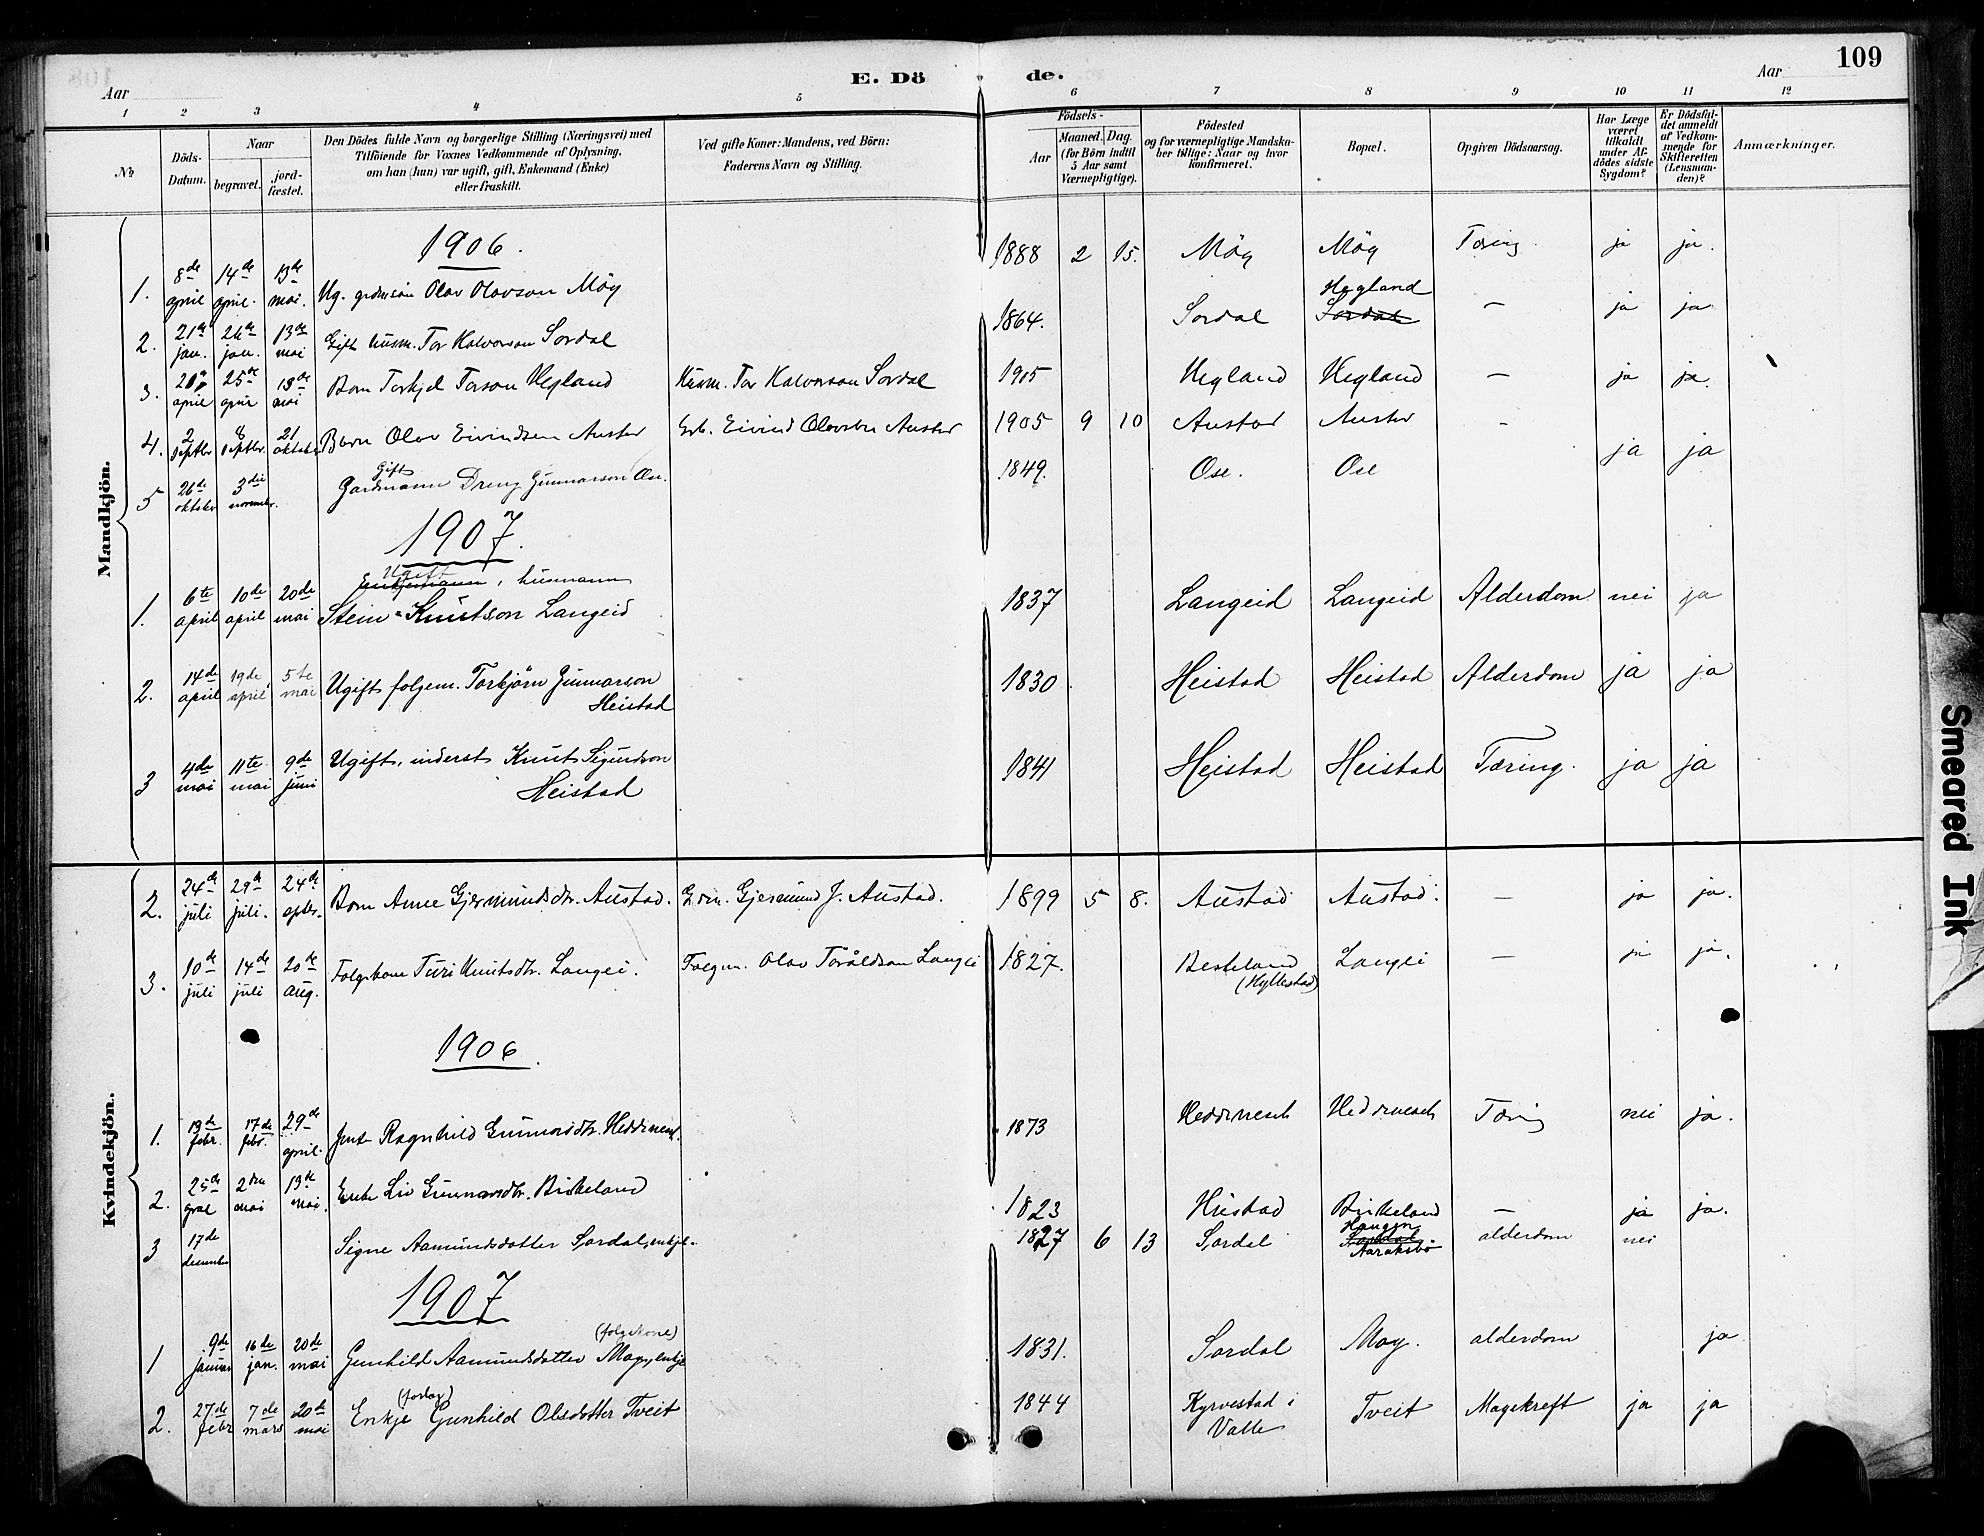 109
E. Döde.
Aar
Aar
1 2 3 4 5 6 7 8 9 10 11 12
No
Döds-Datum.
Naar
begravet.
jord-fæstet.
Den Dödes fulde Navn og borgerlige Stilling (Næringsvei) med
Tilföiende for Voxnes Vedkommende af Oplysning,
om han (hun) var ugift, gift, Enkemand (Enke)
eller fraskilt.
Ved gifte Koner: Mandens, ved Börn:
Faderens Navn og Stilling.
Födsels-
Aar
Maaned. Dag.
(for Börn indtil
5 Aar samt
Værnepligtige).
Födested
og for værnepligtige Mandska-
ber tillige: Naar og hvor
konfirmeret.
Bopæl.
Opgiven Dödsaarsag.
Har Læge
været
tilkaldt
under Af-
dödes sidste
Sygdom?
Er Dödsfal-
det anmeldt
af Vedkom-
mende for
Skifteretten
(Lensman-
den)?
Anmærkninger.
Mandkjön.
1906.
1. 8de april 14de april. 13de mai. Ug. Olav Olavson Möy 1888 2 15. Möy Möy Tæring ja ja.
2. 21de jan. 26de jan. 13de mai Gift husm. Tor Halvorson Sordal 1864. Sordal Hegland Sordal — ja ja
3. april 25de april 13de mai Barn Torkjel Torson Hegland Husm. Tor Halvorson Sordal 1905 Hegland Hegland — ja ja.
4. 2 septbr. 8 septbr. 21 oktober Barn Olav Eivindsen Austad Grb. Eivind Olavsen Austad 1905 9 10 Austad Austad - ja ja
5 26de oktober 3die november. Gift Gardmann Dreng Gunnarson Ose. 1849. Ose. Ose
1907.
1. 6te april 10de april 20de mai Ugift Enkjemann, husmann
Stein Knutson Langeid 1837 Langeid Langeid Alderdom nei ja
2. 14de april 19de april 5te mai Ugift folgem. Torbjörn Gunnarson
Heistad 1830 Heistad Heistad Alderdom ja ja
3 4de mai 11te mai 9de juni Ugift, inderst Knut Sigurdson
Heistad 1841 Heistad Heistad Tæring. ja ja
Kvindekjön.
2. 24de juli 29de juli. 24de Barn Anne Gjermundsdtr. Austad. Gjermund J. Austad. 1899 5 8. Austad Austad. — ja ja.
3. 10de juli 14de juli 20de aug. Folgekone Turi Knutsdtr. Langei. Folgm. Olav Toraldson Langei 1827. Besteland (Hyllestad) Langei — ja ja.
1906.
1. 13de febr. 17de febr. 29de april. Jente Ragnhild Gunnarsdtr. Heddevesch. 1873 Heddevesch Heddevesch Tæring nei ja.
2. 25de april 2den mai 13de mai. Enke Liv Gunnarsdtr. Birkeland 1823 Heistad Birkeland — ja ja.
3 17de desember Signe Aamundsdotter Sordal, enkje. 1827 6 13 Sordal Haugen Sordal Aaraksbö alderdom nei
1907
1 9de januar 16de jan. 20de mai Gunhild Aamundsdotter Moy, enkje (folgekone) 1831. Sordal Moy. alderdom ja
2. 27de febr 7de mars 20de mai Enkje Gunhild Olsdotter Tveit 1844 Kyrvestad i Valle Tveit Magekreft ja ja
Smeared Ink